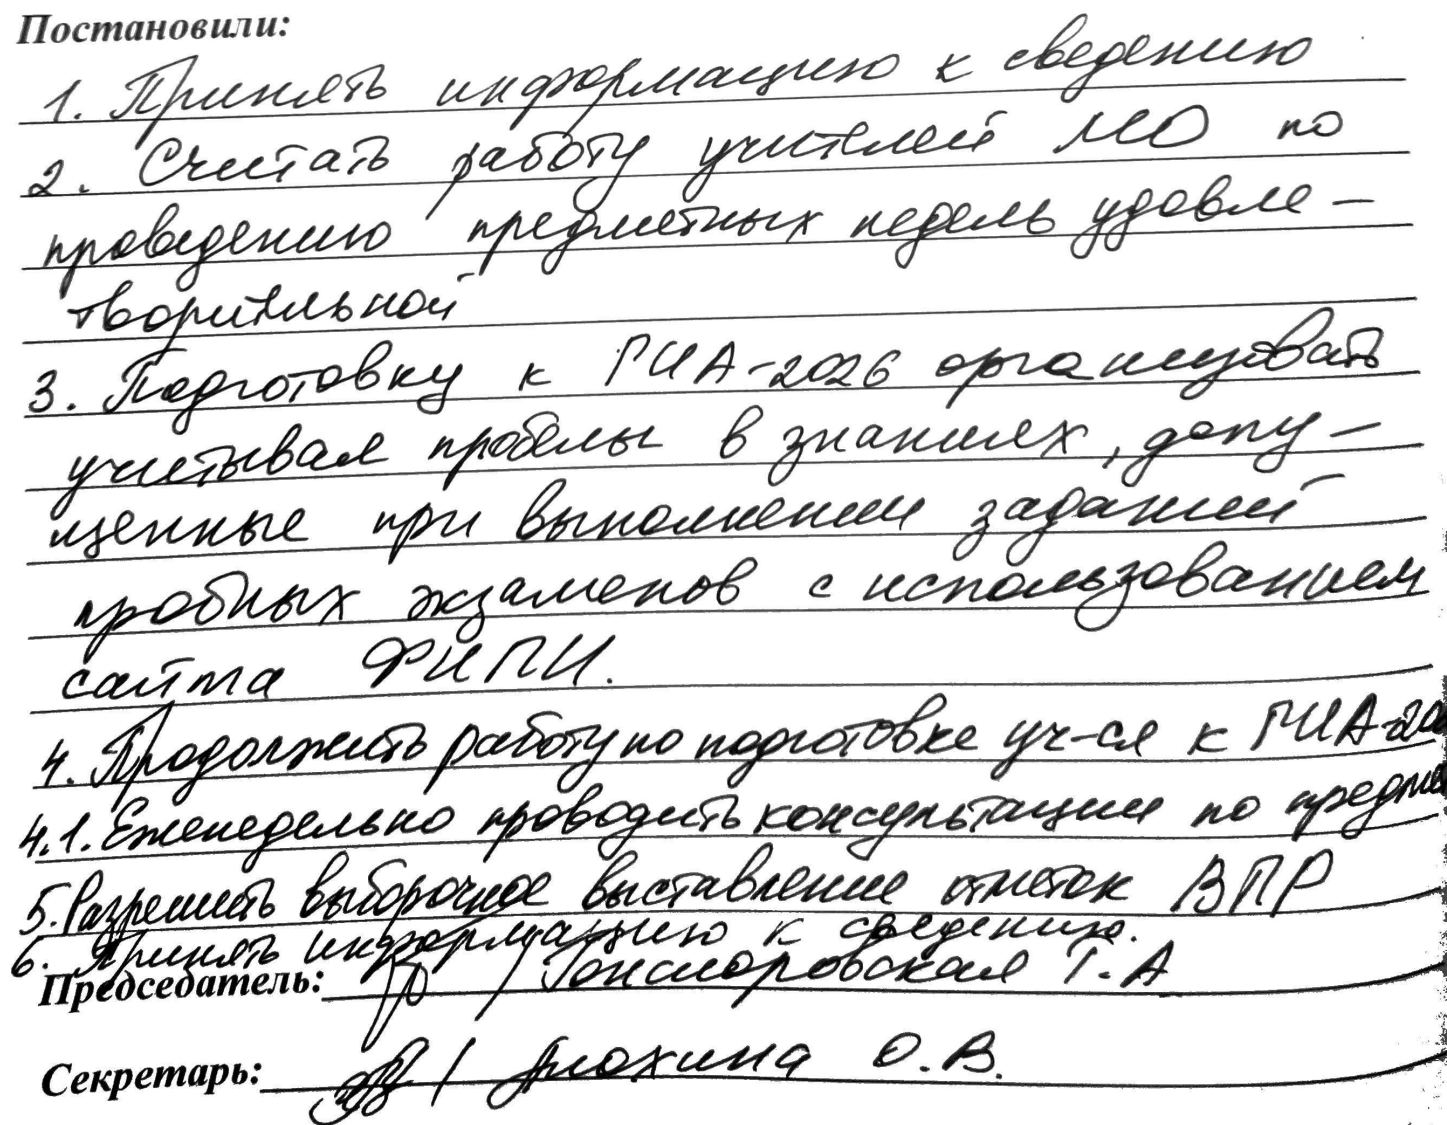 Постановили:
1. Принять информацию к сведению
2. Считать работу учителей МО по
проведению предметных недель удовле-
творительной
3. Подготовку к ГИА-2026 организовать
учитывая пробелы в знаниях, допу-
щенные при выполнении заданий
пробных экзаменов с использованием
сайта ФИПИ.
4. Продолжить работу по подготовке уч-ся к ГИА-202
4.1. Еженедельно проводить консультации по предме
5. Разрешить выборочное выставление отметок ВПР
6. Принять информацию к сведению.
Председатель: / Т.А
Секретарь: / О.В.